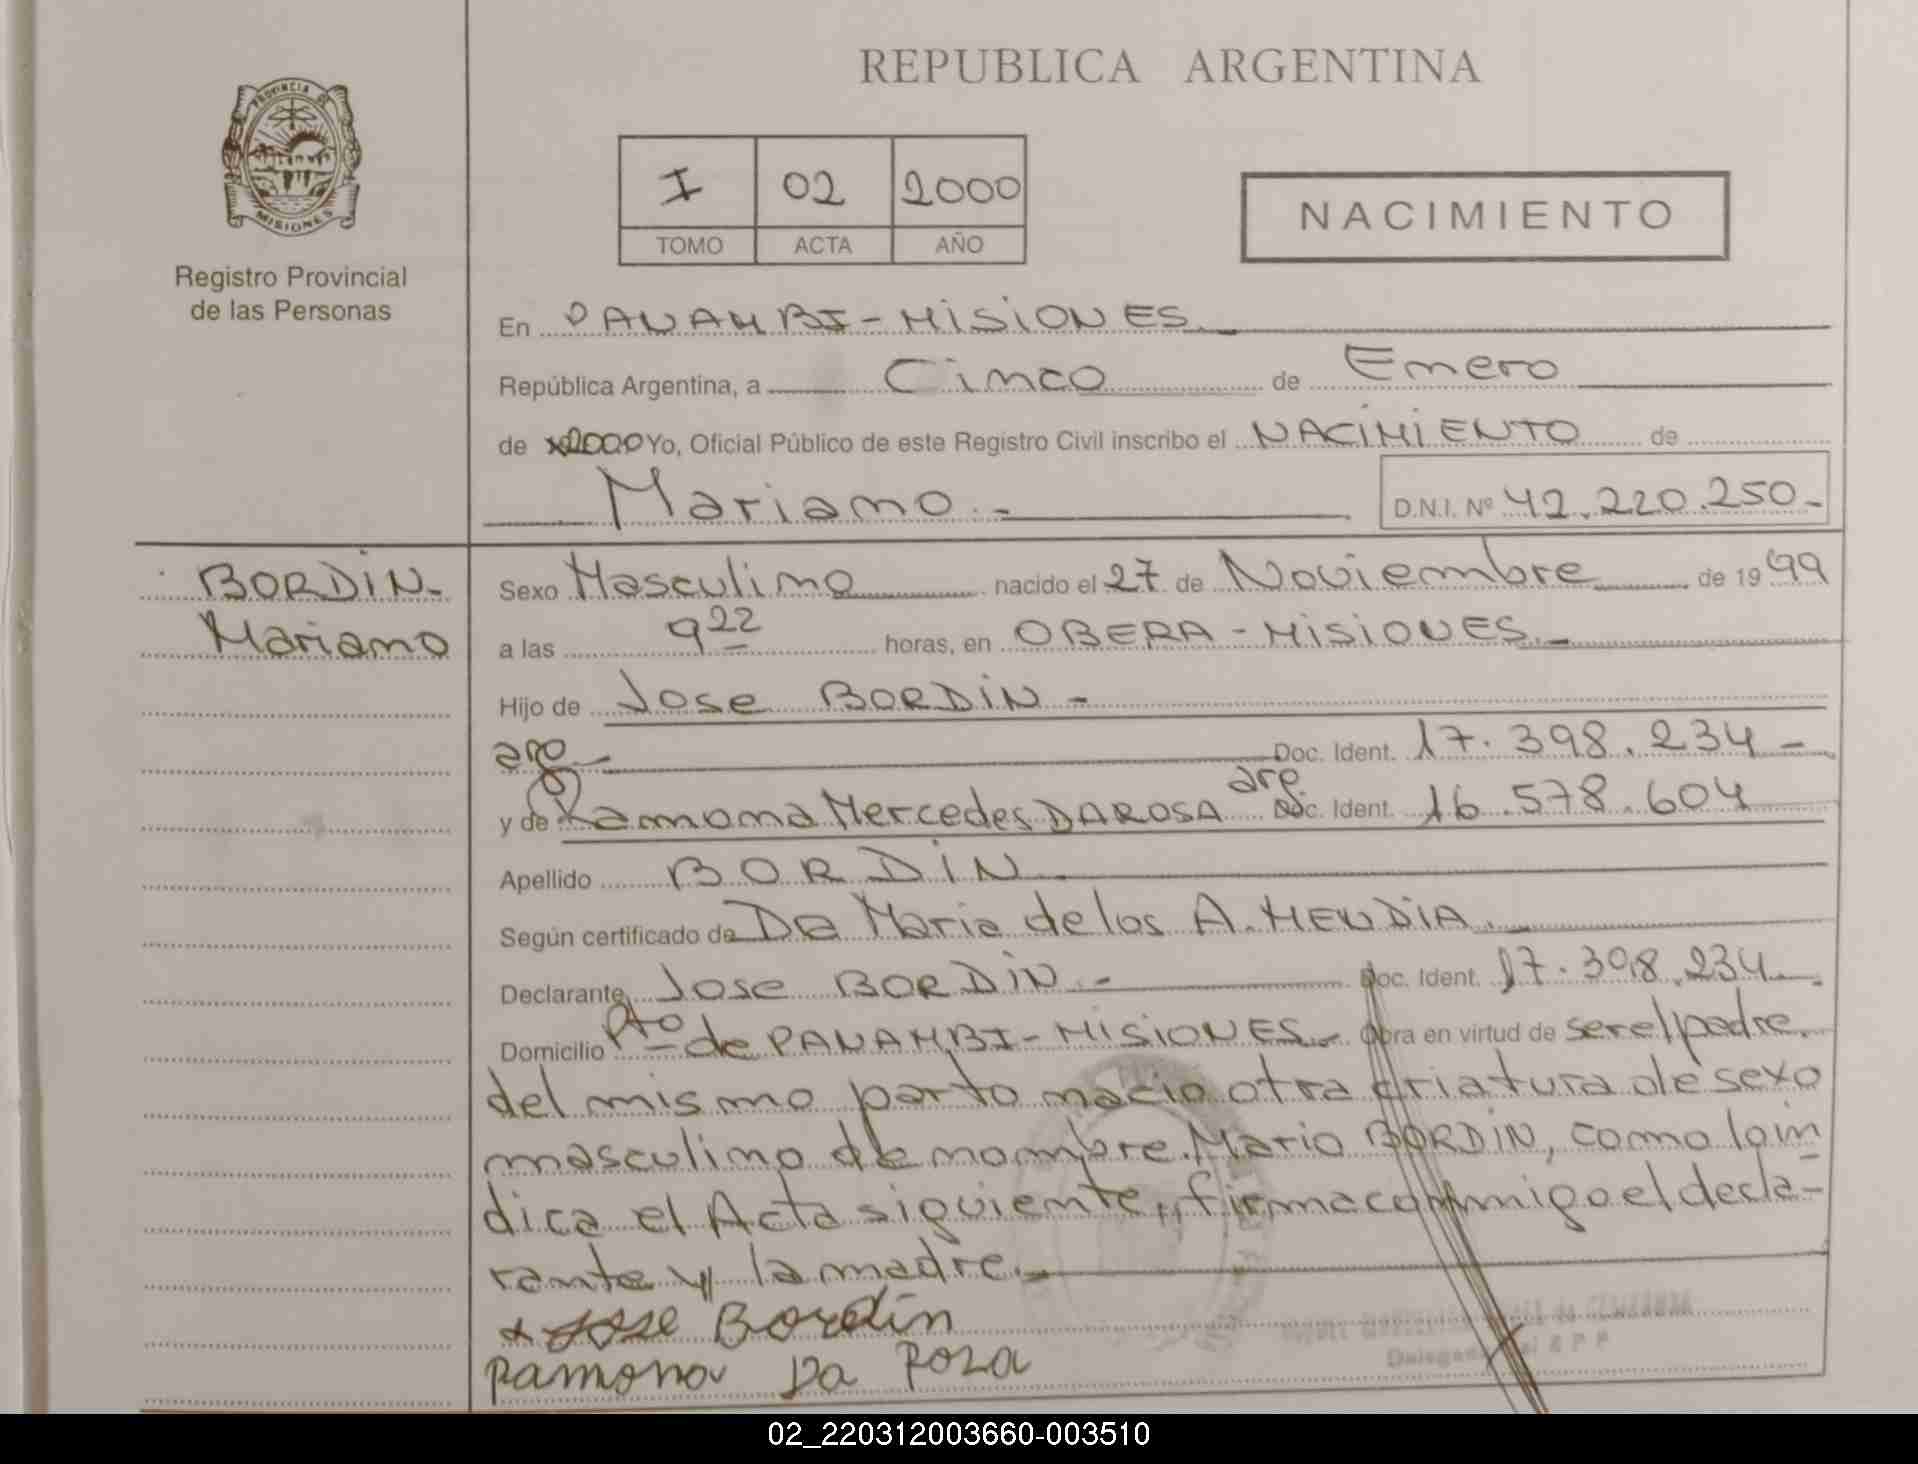 REPUBLICA ARGENTINA
PROVINCIA DE
MISIONES
Registro Provincial
de las Personas
I 02 2000
TOMO ACTA AÑO
NACIMIENTO
En PANAMBI - MISIONES.
República Argentina, a Cinco de Enero
de 2000 Yo, Oficial Público de este Registro Civil inscribo el NACIMIENTO de
Mariano.- D.N.I. Nº 42.220.250-
BORDIN-
Mariano
Sexo Masculino nacido el 27 de Noviembre de 1999
a las 9 22 horas, en OBERA - MISIONES.-
Hijo de Jose BORDIN -
arg- Doc. Ident. 17.398.234-
y de Ramona Mercedes DAROSA arg. Doc. Ident. 16.578.604
Apellido BORDIN
Según certificado de Dra Maria de los A. MENDIA.-
Declarante Jose BORDIN.- Doc. Ident. 17.398.234.-
Domicilio Pto de PANAMBI - MISIONES.- Obra en virtud de ser el padre.
del mismo parto nacio otra criatura de sexo
masculino de nombre Mario BORDIN, como lo in
dica el Acta siguiente,, firma conmigo el decla-
rante y la madre.-
Jose Bordin
Ramona Da Roza
02_220312003660-003510